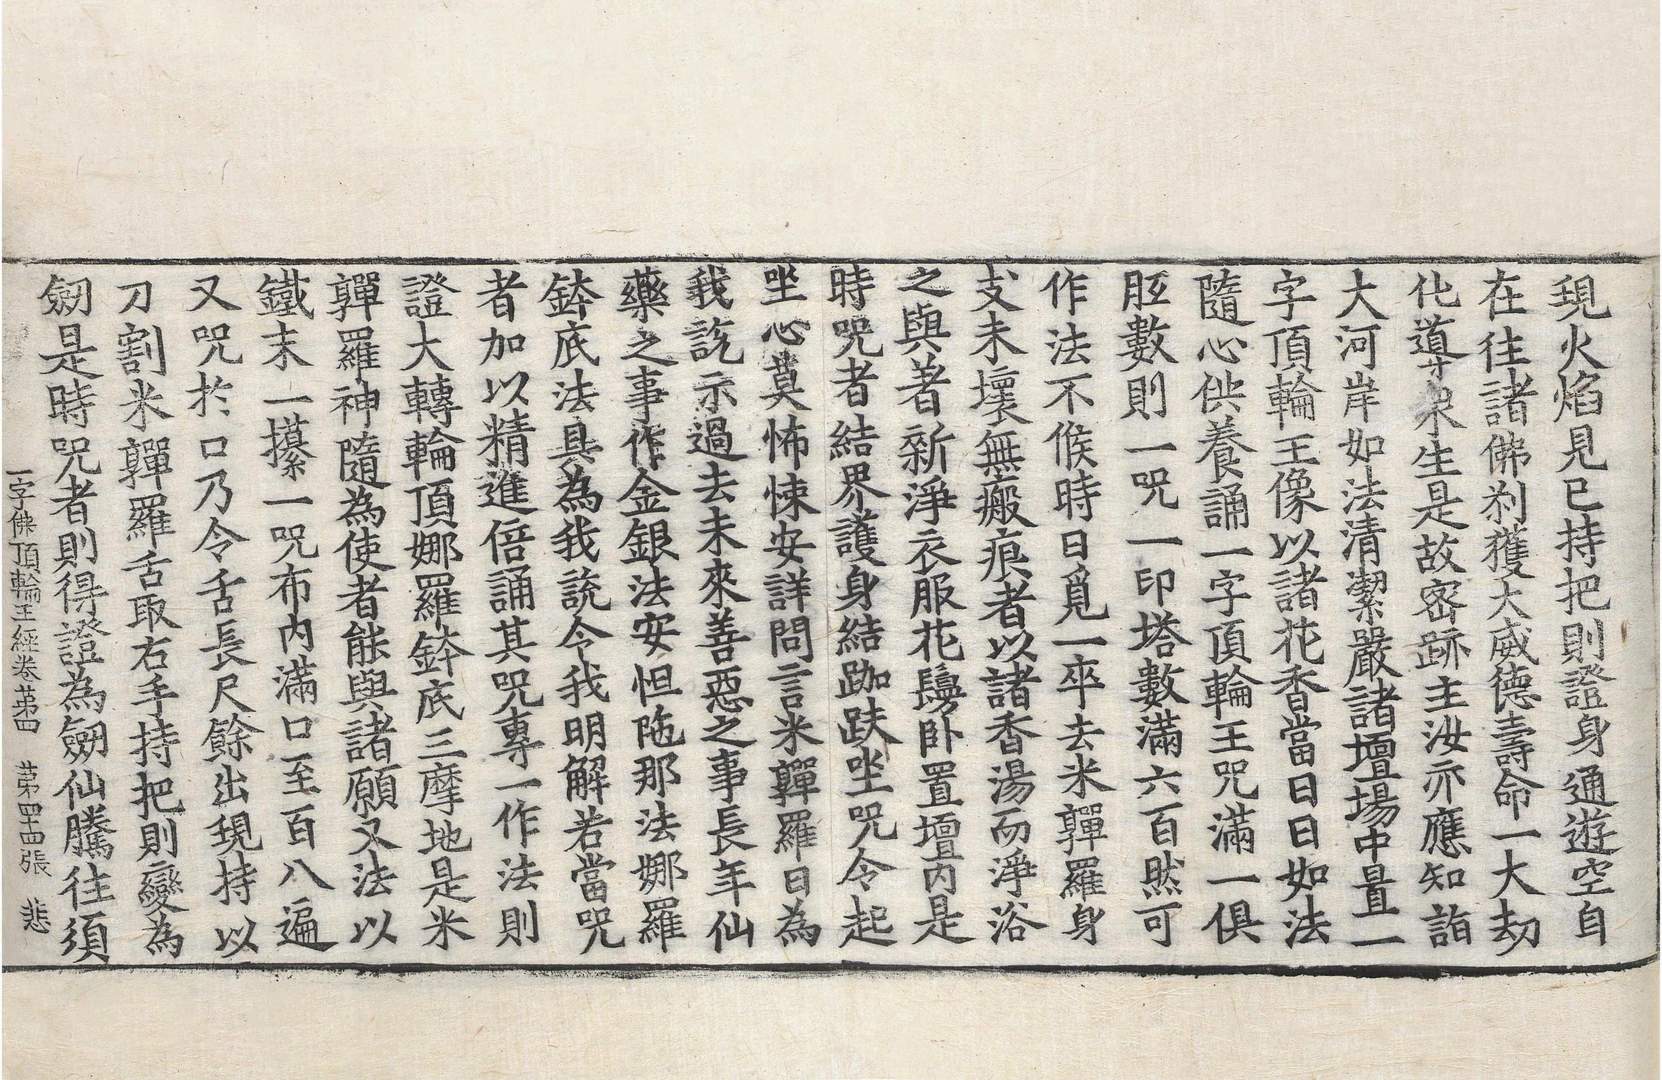 現火焰見已持把則證身通遊空自
在往諸佛刹獲大威德壽命一大劫
化導衆生是故密跡主汝亦應知詣
大河岸如法清潔嚴諸壇場中置一
字頂輪王像以諸花香當日日如法
隨心供養誦一字頂輪王咒滿一俱
胝數則一咒一印塔數滿六百然可
作法不候時日覓一卒去米亸羅身
支未壞無瘢痕者以諸香湯而淨浴
之與著新淨衣服花鬘卧置壇内是
時咒者結界護身結跏趺坐咒令起
坐心莫怖悚安詳問言米亸羅日為
我説示過去未來善惡之事長年仙
藥之事作金銀法安怛陁那法娜羅
鉢底法具為我説令我明解若當咒
者加以精進倍誦其咒專一作法則
證大轉輪頂娜羅鉢底三摩地是米
亸羅神隨為使者能與諸願又法以
鐵末一攥一咒布内滿口至百八遍
又咒於口乃令舌長尺餘出現持以
刀割米亸羅舌取右手持把則變為
劒是時咒者則得證為劒仙騰往須
一字佛頂輪王經卷苐四　苐四十四張　悲